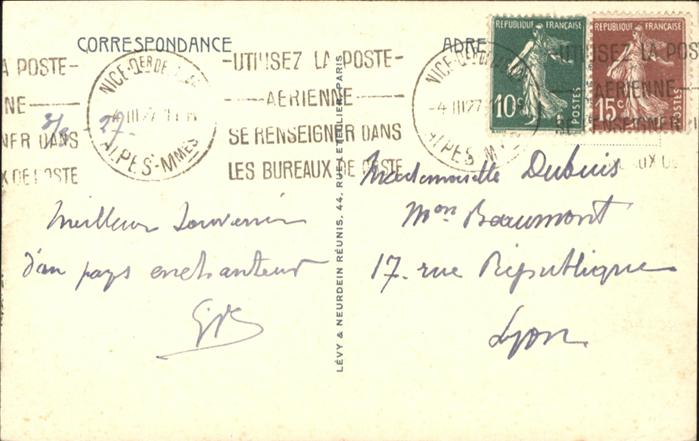 CORRESPONDANCE
ADRE
RÉPUBLIQUE FRANÇAISE
10c
POSTES
RÉPUBLIQUE FRANÇAISE
15c
POSTES
A POSTE-
NE
NER DANS
X DE POSTE
NICE
-4 III 27
ALPES-MMES
-UTILISEZ LA POSTE-
AERIENNE
SE RENSEIGNER DANS
LES BUREAUX DE POSTE
NICE
-4 III 27
ALPES-MMES
UTILISEZ LA POST
AERIENNE
SE RENSEIGNER
AUX DE
27-
Meilleur Souvenir
d'un pays enchanteur
LÉVY & NEURDEIN RÉUNIS, 44, RUE LETELLIER, PARIS
Mademoiselle Dubuis
Mon Beaumont
17. rue République
Lyon.